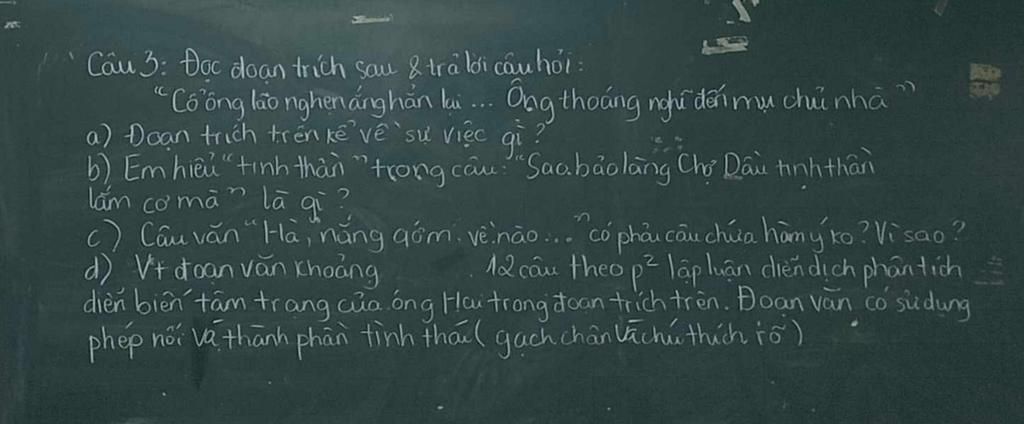 Câu 3: Đọc đoạn trích sau & trả lời câu hỏi:
"Cổ ông lão nghẹn ắng hẳn lại ... Ông thoáng nghĩ đến mụ chủ nhà"
a) Đoạn trích trên kể về sự việc gì?
b) Em hiểu "tinh thần" trong câu: "Sao bảo làng Chợ Dầu tinh thần
lắm cơ mà" là gì?
c) Câu văn "Hà, nắng gớm, về nào..." có phải câu chứa hàm ý ko? Vì sao?
d) Vt đoạn văn khoảng 12 câu theo p² lập luận diễn dịch phân tích
diễn biến tâm trạng của ông Hai trong đoạn trích trên. Đoạn văn có sử dụng
phép nối và thành phần tình thái (gạch chân và chú thích rõ)